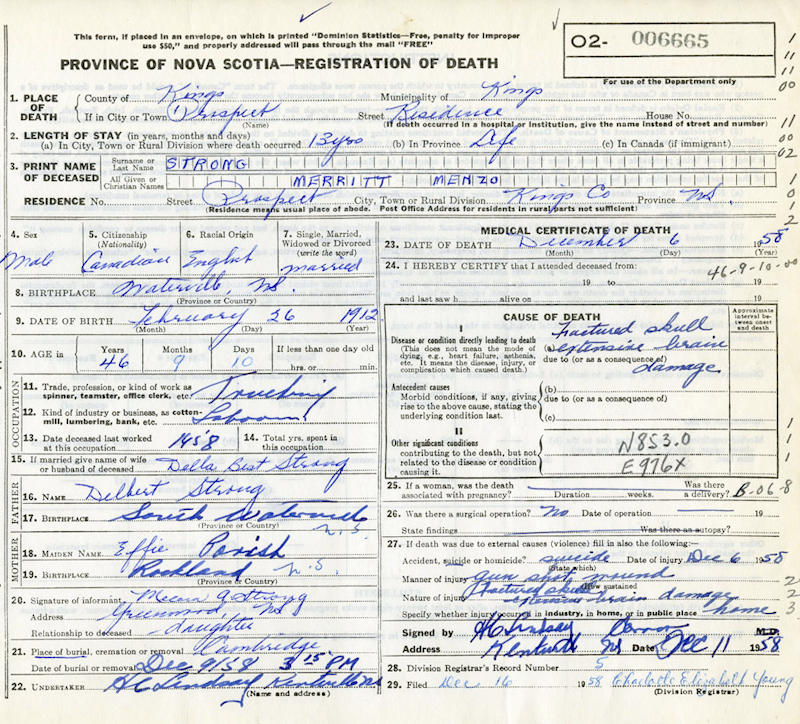 This form, if placed in an envelope, on which is printed "Dominion Statistics—Free, penalty for improper
use $50," and properly addressed will pass through the mail "FREE"
O2- 006665
For use of the Department only
PROVINCE OF NOVA SCOTIA—REGISTRATION OF DEATH
1. PLACE OF DEATH County of Kings Municipality of Kings
If in City or Town Prospect Street Residence House No.
(Name) (If death occurred in a hospital or Institution, give the name instead of street and number)
2. LENGTH OF STAY (in years, months and days)
(a) In City, Town or Rural Division where death occurred 13 yrs (b) In Province Life (c) In Canada (if immigrant)
3. PRINT NAME OF DECEASED Surname or Last Name STRONG
All Given or Christian Names MERRITT MENZO
RESIDENCE No. Street Prospect City, Town or Rural Division Kings Co Province N.S.
(Residence means usual place of abode. Post Office Address for residents in rural parts not sufficient)
4. Sex Male
5. Citizenship (Nationality) Canadian
6. Racial Origin English
7. Single, Married, Widowed or Divorced (write the word) married
8. BIRTHPLACE Waterville, N.S.
(Province or Country)
9. DATE OF BIRTH February 26 1912
(Month) (Day) (Year)
10. AGE in Years 46 Months 9 Days 10 If less than one day old hrs. or min.
OCCUPATION
11. Trade, profession, or kind of work as spinner, teamster, office clerk, etc. Trucking
12. Kind of industry or business, as cotton-mill, lumbering, bank, etc.
13. Date deceased last worked at this occupation 1958
14. Total yrs. spent in this occupation
15. If married give name of wife or husband of deceased Della Best Strong
FATHER
16. NAME Delbert Strong
17. BIRTHPLACE South Waterville N.S.
(Province or Country)
MOTHER
18. MAIDEN NAME Effie Parish
19. BIRTHPLACE Rockland N.S.
(Province or Country)
20. Signature of informant Strong
Address Greenwood NS
Relationship to deceased daughter
21. Place of burial, cremation or removal Cambridge
Date of burial or removal Dec 9/58 3 15 PM
22. UNDERTAKER H C Lindsay Kentville NS
(Name and address)
MEDICAL CERTIFICATE OF DEATH
23. DATE OF DEATH December 6 1958
(Month) (Day) (Year)
24. I HEREBY CERTIFY that I attended deceased from:
46-9-10-00
19 to 19
and last saw h alive on 19
CAUSE OF DEATH
Approximate interval between onset and death
I
Disease or condition directly leading to death
(This does not mean the mode of dying, e.g., heart failure, asthenia, etc. It means the disease, injury, or complication which caused death.)
(a) Fractured skull
extensive brain
due to (or as a consequence of)
damage
Antecedent causes
Morbid conditions, if any, giving rise to the above cause, stating the underlying condition last.
(b)
due to (or as a consequence of)
(c)
II
Other significant conditions
contributing to the death, but not related to the disease or condition causing it.
N853.0
E976X
25. If a woman, was the death associated with pregnancy? Duration weeks. Was there a delivery? B-06-8
26. Was there a surgical operation? No Date of operation 19
State findings Was there an autopsy?
27. If death was due to external causes (violence) fill in also the following:—
Accident, suicide or homicide? suicide Date of injury Dec 6 1958
(State which)
Manner of injury gun shot wound
(How sustained
Nature of injury fractured skull
brain damage
Specify whether injury occurred in industry, in home, or in public place home
Signed by H C Lindsay M.D.
Address Kentville NS Date Dec 11 1958
28. Division Registrar's Record Number 5
29. Filed Dec 16 1958 Charlotte Elizabeth Young
(Division Registrar)